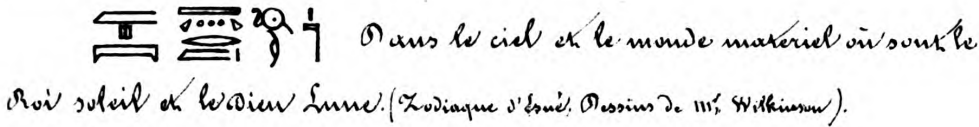 Dans le ciel et le monde matériel où sont le
Roi soleil et le Dieu Lune. (Zodiaque d'Esné. Dessins de Mr. Wilkinson).